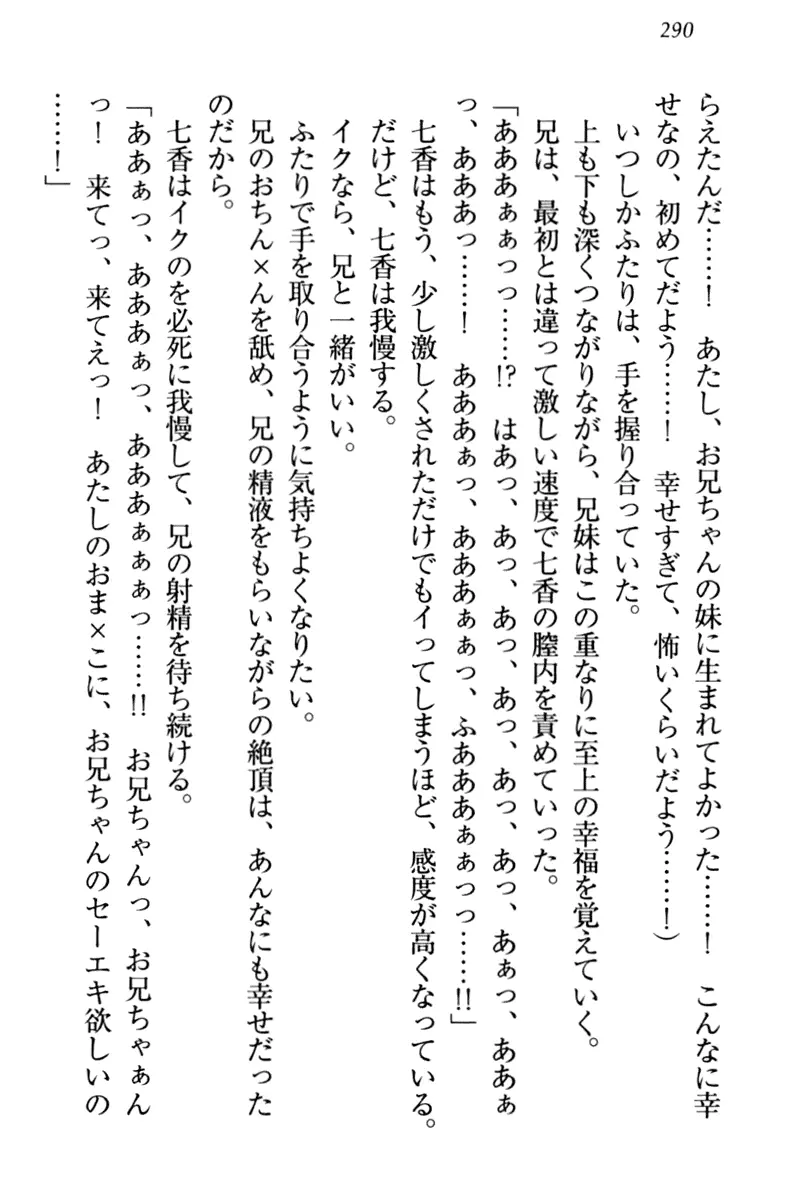 290
らえたんだ……！　あたし、お兄ちゃんの妹に生まれてよかった……！　こんなに幸
せなの、初めてだよう……！　幸せすぎて、怖いくらいだよう……！）
いつしかふたりは、手を握り合っていた。
上も下も深くつながりながら、兄妹はこの重なりに至上の幸福を覚えていく。
兄は、最初とは違って激しい速度で七香の膣内を責めていった。
「あああぁぁっっ……!?　はあっ、あっ、あっ、あっ、あっ、あっ、あぁっ、ああぁ
っ、あああっ……！　あああぁっ、あああぁぁっ、ふあああぁぁっっ……!!」
七香はもう、少し激しくされただけでもイってしまうほど、感度が高くなっている。
だけど、七香は我慢する。
イクなら、兄と一緒がいい。
ふたりで手を取り合うように気持ちよくなりたい。
兄のおちん×んを舐め、兄の精液をもらいながらの絶頂は、あんなにも幸せだった
のだから。
七香はイクのを必死に我慢して、兄の射精を待ち続ける。
「ああぁっ、あああぁっ、あああぁぁぁっ……!!　お兄ちゃんっ、お兄ちゃぁん
っ！　来てっ、来てえっ！　あたしのおま×こに、お兄ちゃんのセーエキ欲しいの
……！」